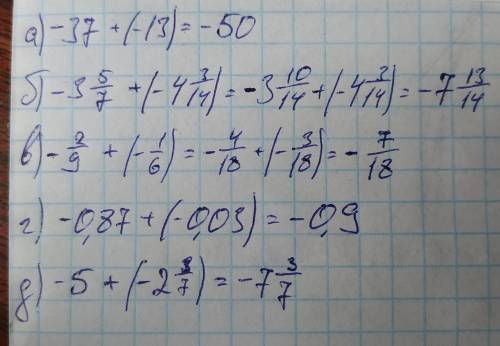 а) -37 + (-13) = -50
б) -3 5/7 + (-4 3/14) = -3 10/14 + (-4 3/14) = -7 13/14
в) -2/9 + (-1/6) = -4/18 + (-3/18) = -7/18
г) -0,87 + (-0,03) = -0,9
д) -5 + (-2 3/7) = -7 3/7